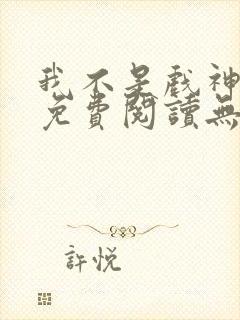 我不是戲神
免費閱讀無
許悅